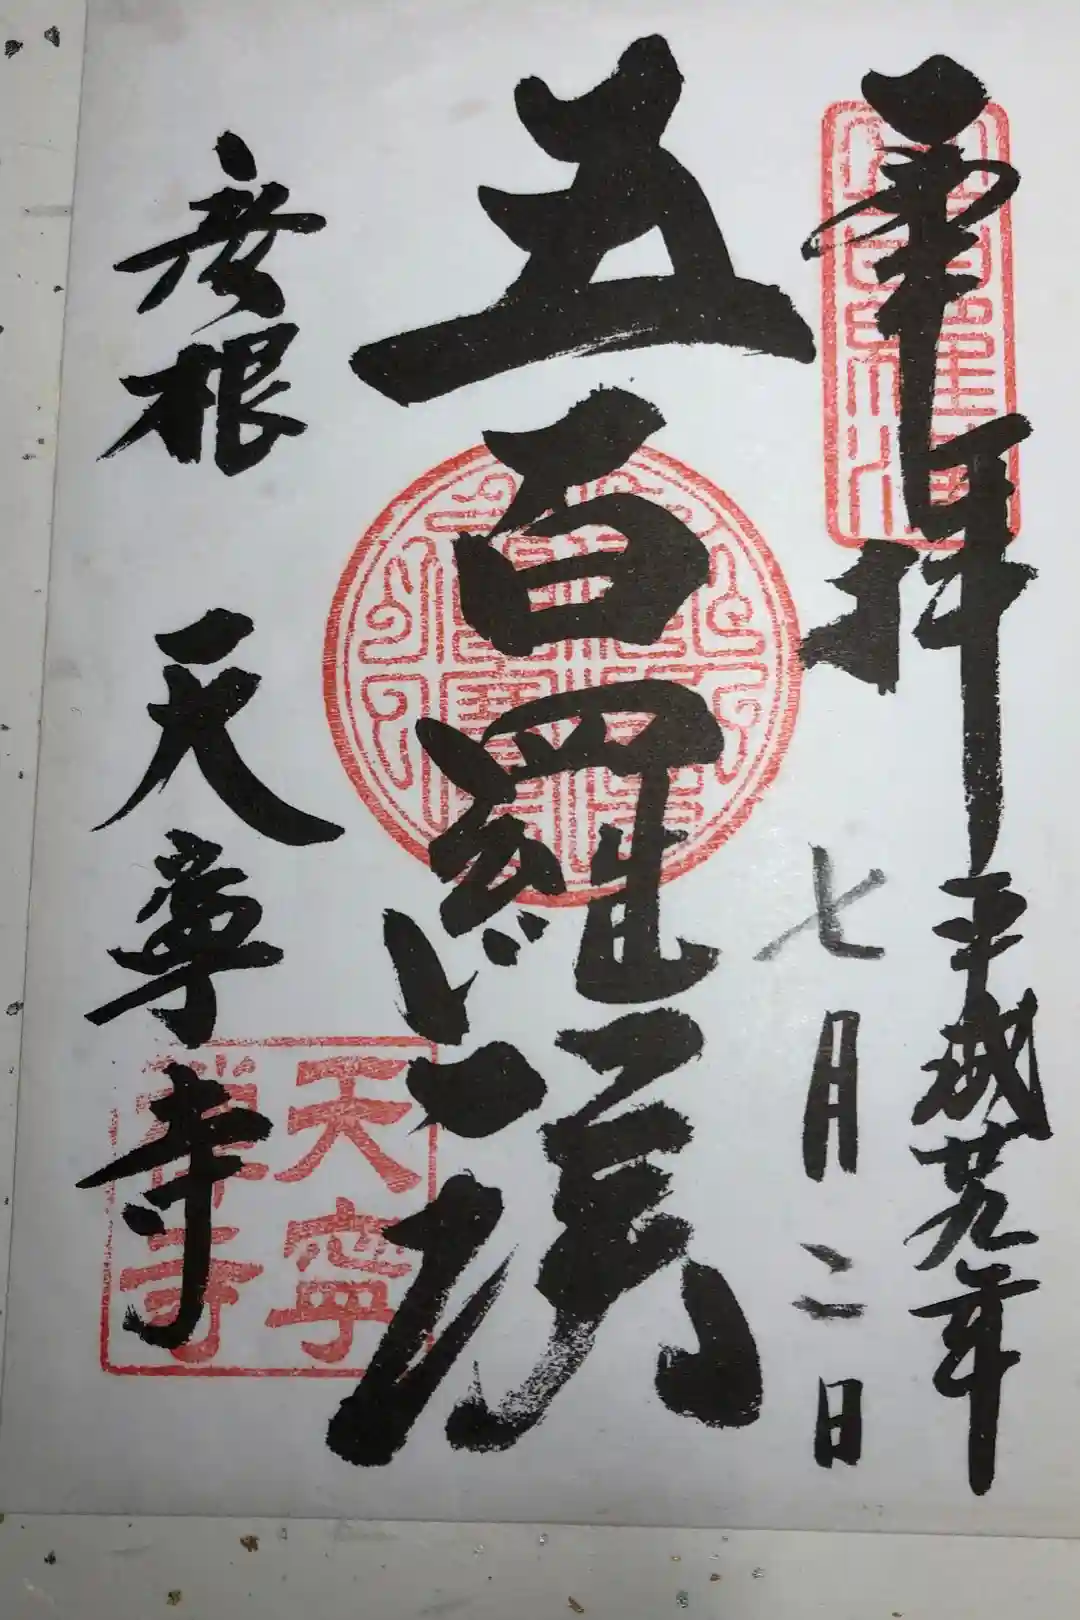 奉拝
平成廿九年
七月二日
五百羅漢
彦根 天寧寺
天寧
禅寺